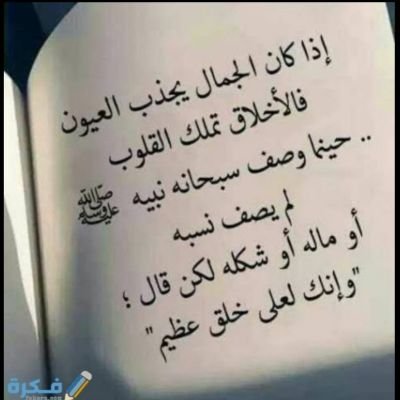 إذا كان الجمال يجذب العيون
فالأخلاق تملك القلوب
.. حينما وصف سبحانه نبيه ﷺ
لم يصف نسبه
أو ماله أو شكله لكن قال ؛
"وإنك لعلى خلق عظيم"
فكرة